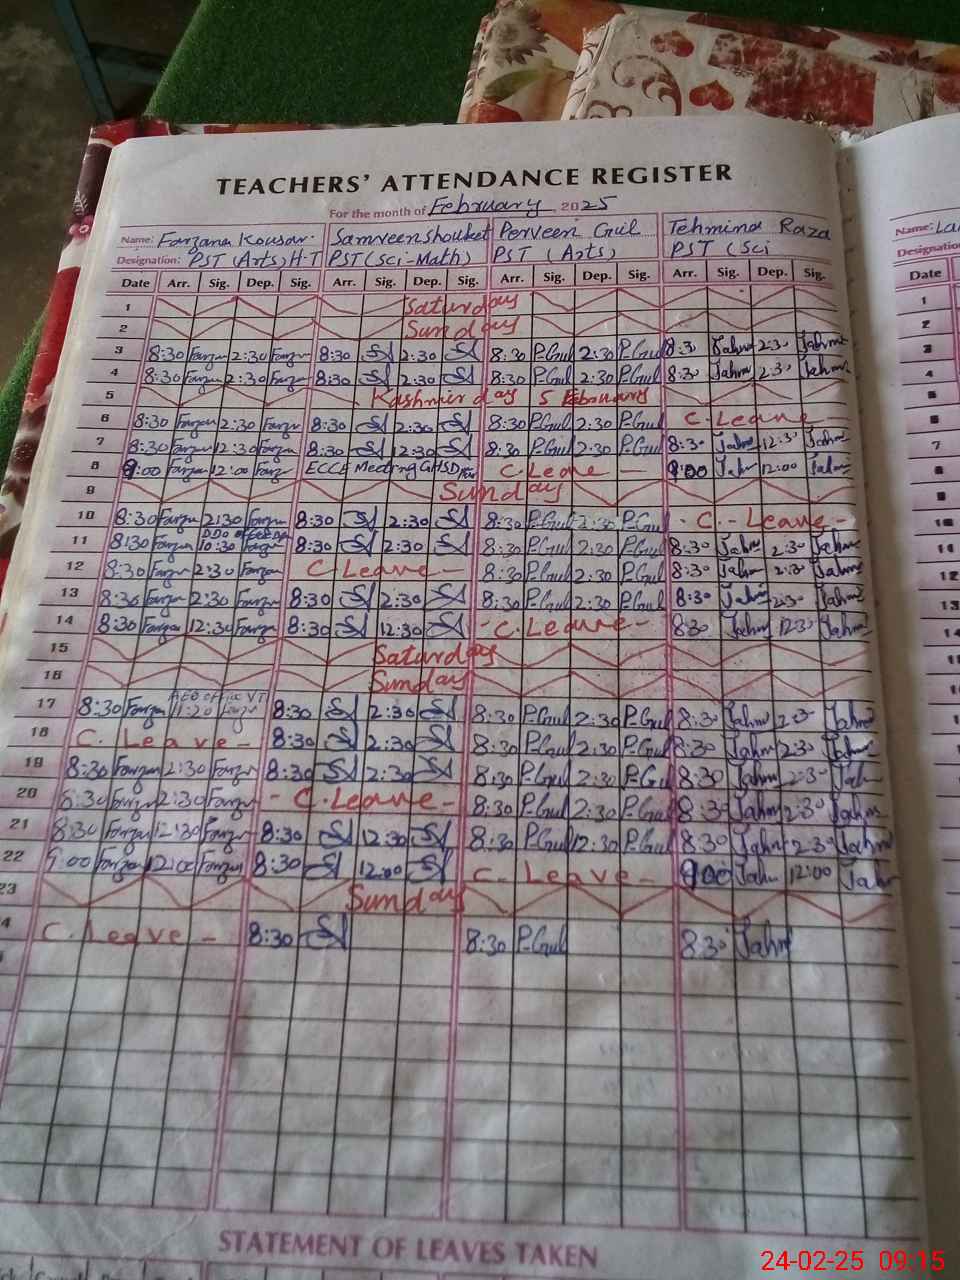 TEACHERS' ATTENDANCE REGISTER
For the month of February 2025
Name: Farzana Kousar. Samreen Shouket Perveen Gul Tehmina Raza
Designation: PST (Arts) H.T PST (Sci-Math) PST (Arts) PST (Sci
Date Arr. Sig. Dep. Sig. Arr. Sig. Dep. Sig. Arr. Sig. Dep. Sig. Arr. Sig. Dep. Sig.
1 Saturday
2 Sunday
3 8:30 Farzan 2:30 Farzan 8:30 2:30 8:30 P.Gul 2:30 P.Gul 8:30 Tahm 2:30 Tahm
4 8:30 Farzan 2:30 Farzan 8:30 2:30 8:30 P.Gul 2:30 P.Gul 8:30 Tahm 2:30 Tahm
5 Kashmir day 5 February
6 8:30 Farzan 2:30 Farzan 8:30 2:30 8:30 P.Gul 2:30 P.Gul C. Leave -
7 8:30 Farzan 12:30 Farzan 8:30 12:30 8:30 P.Gul 12:30 P.Gul 8:30 Tahm 12:30 Tahm
8 9:00 Farzan 12:00 Farzan ECCE Meeting GHSD C. Leave - 9:00 Tahm 12:00 Tahm
9 Sunday
10 8:30 Farzan 2:30 Farzan 8:30 2:30 8:30 P.Gul 2:30 P.Gul - C. - Leave -
11 8:30 Farzan 10:30 Farzan 8:30 2:30 8:30 P.Gul 2:30 P.Gul 8:30 Tahm 2:30 Tahm
12 8:30 Farzan 2:30 Farzan C Leave - 8:30 P.Gul 2:30 P.Gul 8:30 Tahm 2:30 Tahm
13 8:30 Farzan 2:30 Farzan 8:30 2:30 8:30 P.Gul 2:30 P.Gul 8:30 Tahm 2:30 Tahm
14 8:30 Farzan 12:30 Farzan 8:30 12:30 - C. Leave - 8:30 Tahm 12:30 Tahm
15 Saturday
16 Sunday
17 8:30 Farzan AEO office VT 11:20 Farzan 8:30 2:30 8:30 P.Gul 2:30 P.Gul 8:30 Tahm 2:30 Tahm
18 C. Leave - 8:30 2:30 8:30 P.Gul 2:30 P.Gul 8:30 Tahm 2:30 Tahm
19 8:30 Farzan 2:30 Farzan 8:30 2:30 8:30 P.Gul 2:30 P.Gul 8:30 Tahm 2:30 Tahm
20 8:30 Farzan 2:30 Farzan - C. Leave - 8:30 P.Gul 2:30 P.Gul 8:30 Tahm 2:30 Tahm
21 8:30 Farzan 12:30 Farzan 8:30 12:30 8:30 P.Gul 12:30 P.Gul 8:30 Tahm 2:30 Tahm
22 9:00 Farzan 12:00 Farzan 8:30 12:00 C. Leave - 9:00 Tahm 12:00 Tahm
23 Sunday
4 C. Leave - 8:30 8:30 P.Gul 8:30 Tahm
STATEMENT OF LEAVES TAKEN
Name:
Designation
Date
1
2
3
4
5
6
7
8
9
10
11
12
13
14
24-02-25 09:15